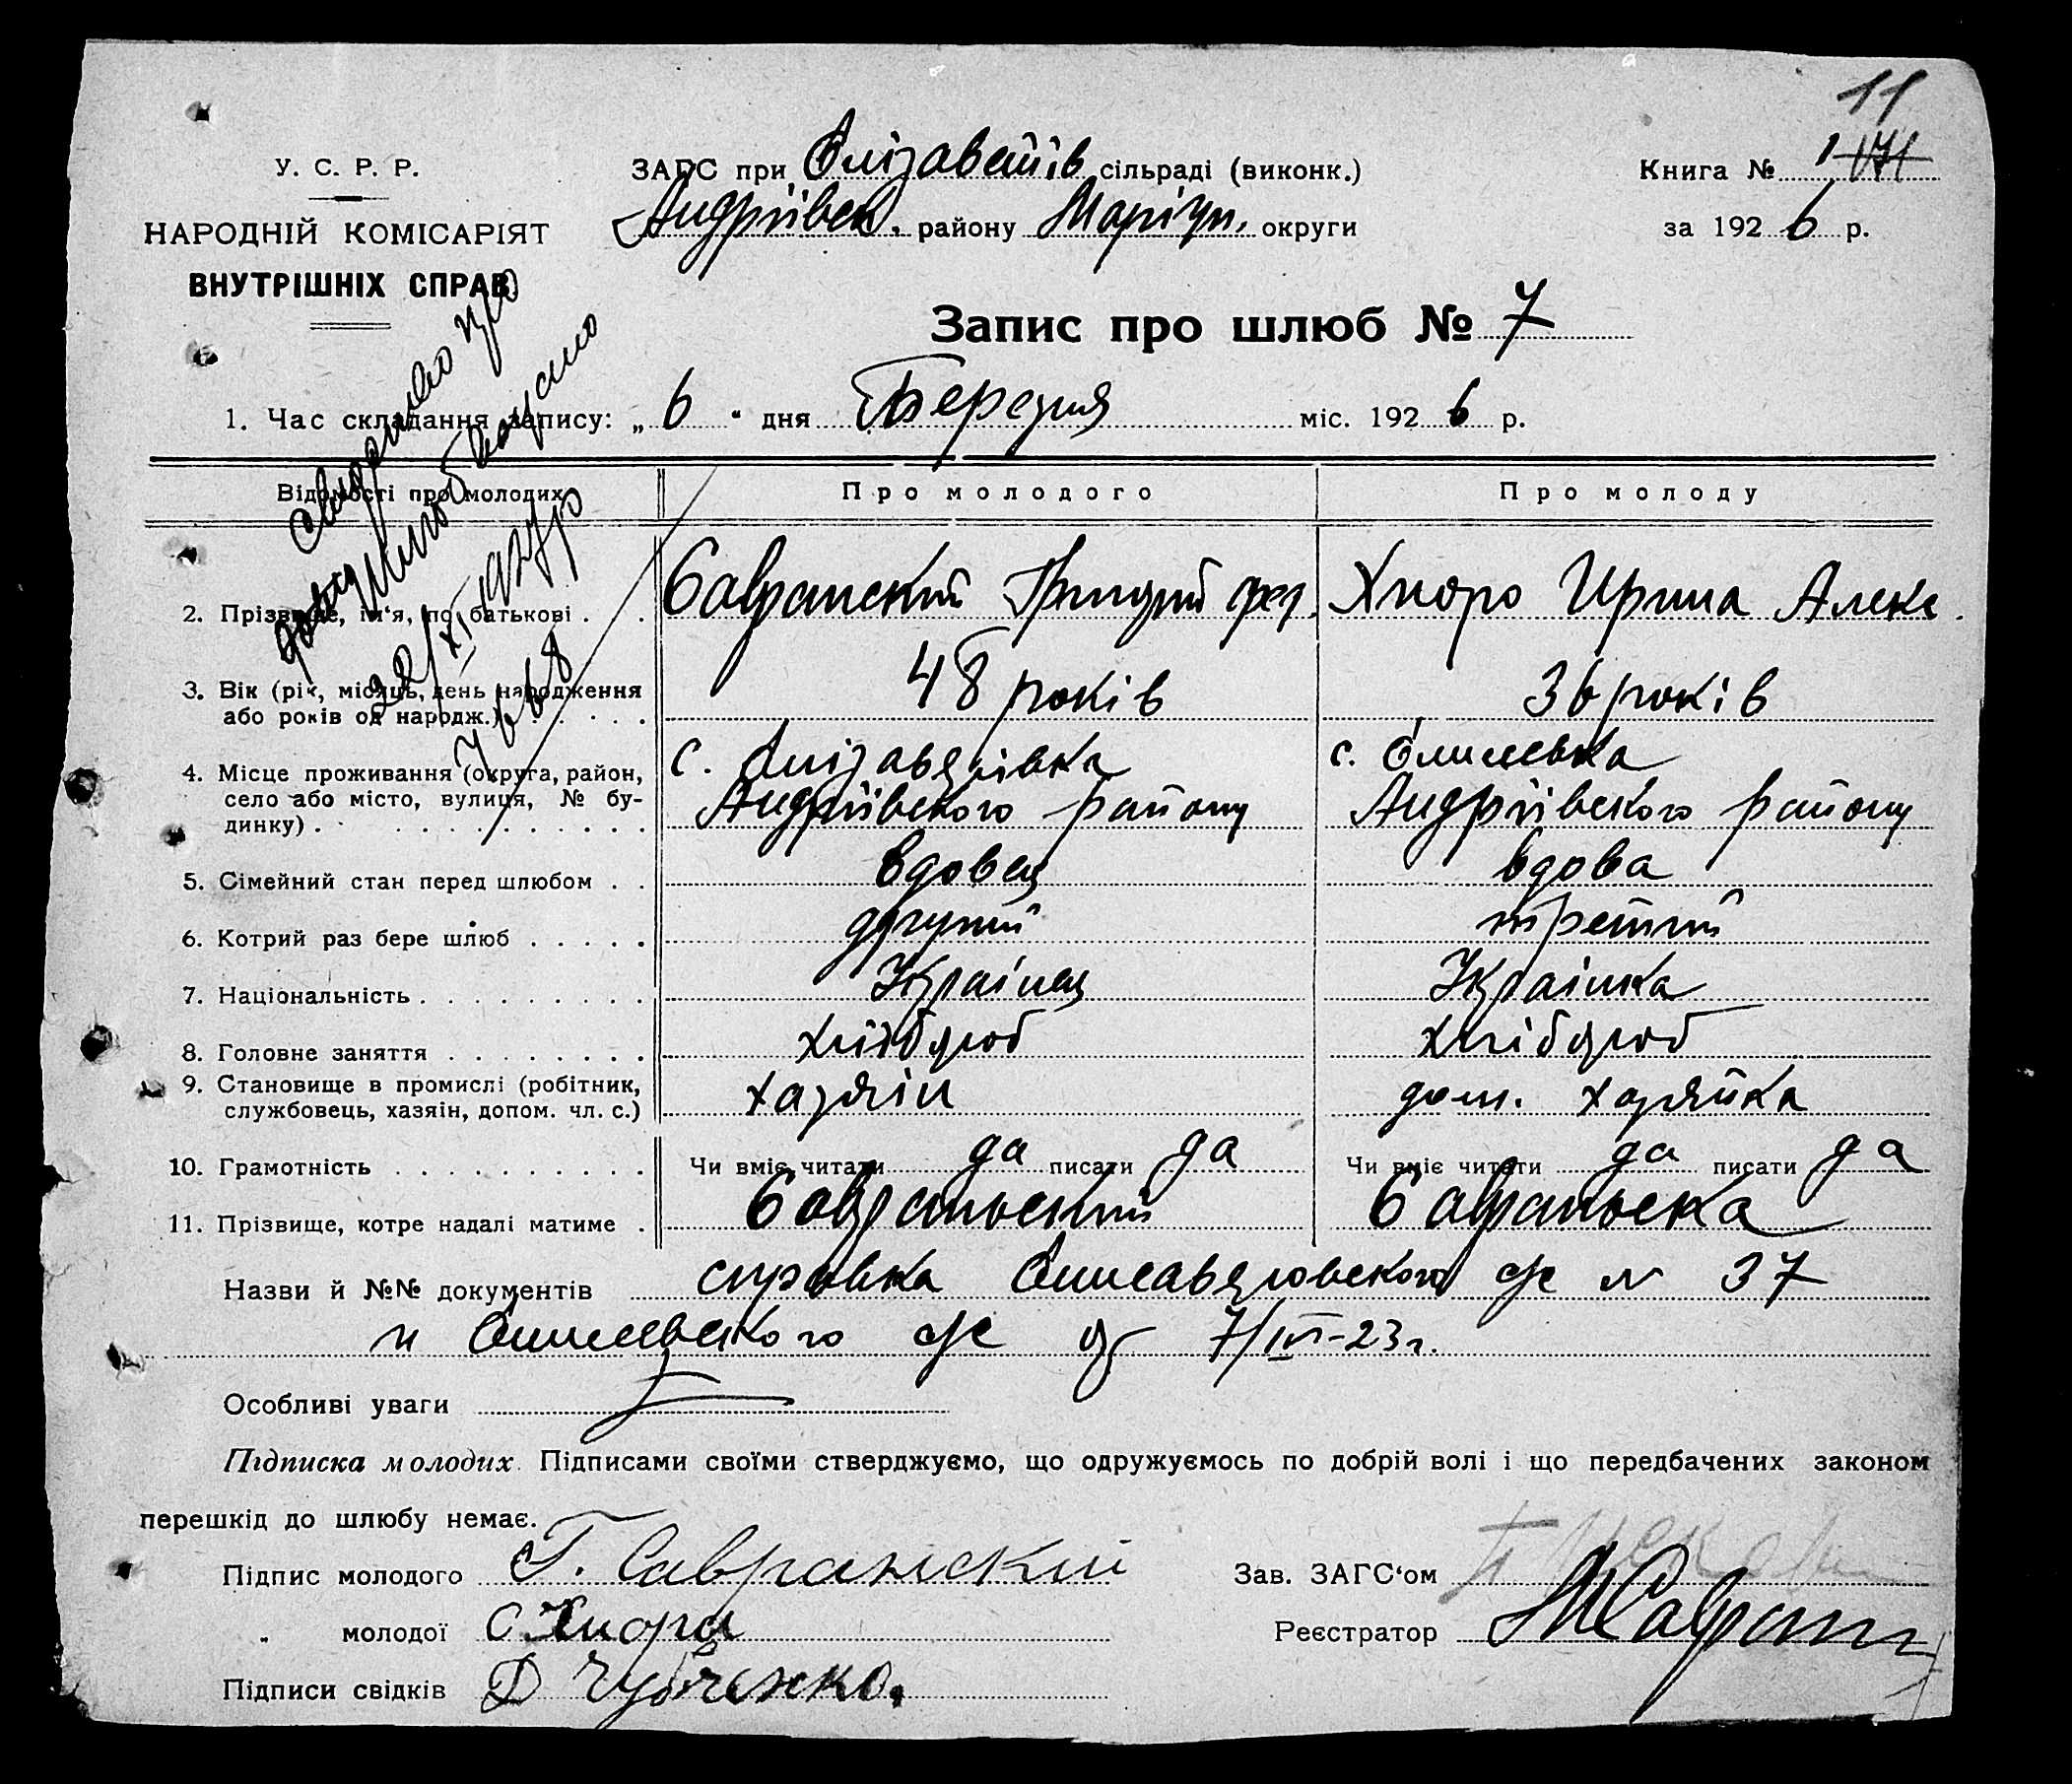 11
У. С. Р. Р.
НАРОДНІЙ КОМІСАРІЯТ
ВНУТРІШНІХ СПРАВ
ЗАГС при Єлізаветів сільраді (виконк.)
Андріївськ. району Маріуп. округи
Книга № 1 171
за 1926 р.
Запис про шлюб № 7
1. Час складання запису: „6“ дня Березня міс. 1926 р.
Відомості про молодих
Про молодого
Про молоду
2. Прізвище, ім'я, по батькові . .
Савранский Григорий фед.
Хноро Ирина Алекс.
3. Вік (рік, місяць, день народження
або років од народж.) . . . . .
48 років
36 років
4. Місце проживання (округа, район,
село або місто, вулиця, № бу-
динку) . . . . . . . . . .
с. Єлізаветівка
Андріївского району
с.
Андріївского району
5. Сімейний стан перед шлюбом . .
вдовец
вдова
6. Котрий раз бере шлюб . . . . .
другий
третий
7. Національність . . . . . . . . .
Українец
Українка
8. Головне заняття . . . . . . . .
хлібороб
хлібороб
9. Становище в промислі (робітник,
службовець, хазяін, допом. чл. с.)
хазяін
дом. хазяйка
10. Грамотність . . . . . . . . . .
Чи вміє читати да писати да
Чи вміє читати да писати да
11. Прізвище, котре надалі матиме .
Савранський
Савранська
Назви й №№ документів справка Елисаветовского с/с № 37
и с/с от 7/IV-23г.
Особливі уваги
Підписка молодих. Підписами своїми стверджуємо, що одружуємось по добрій волі і що передбачених законом
перешкід до шлюбу немає.
Підпис молодого Г. Савранский
Зав. ЗАГС'ом
„ молодої Хнора
Реєстратор
Підписи свідків Д Чубченко.